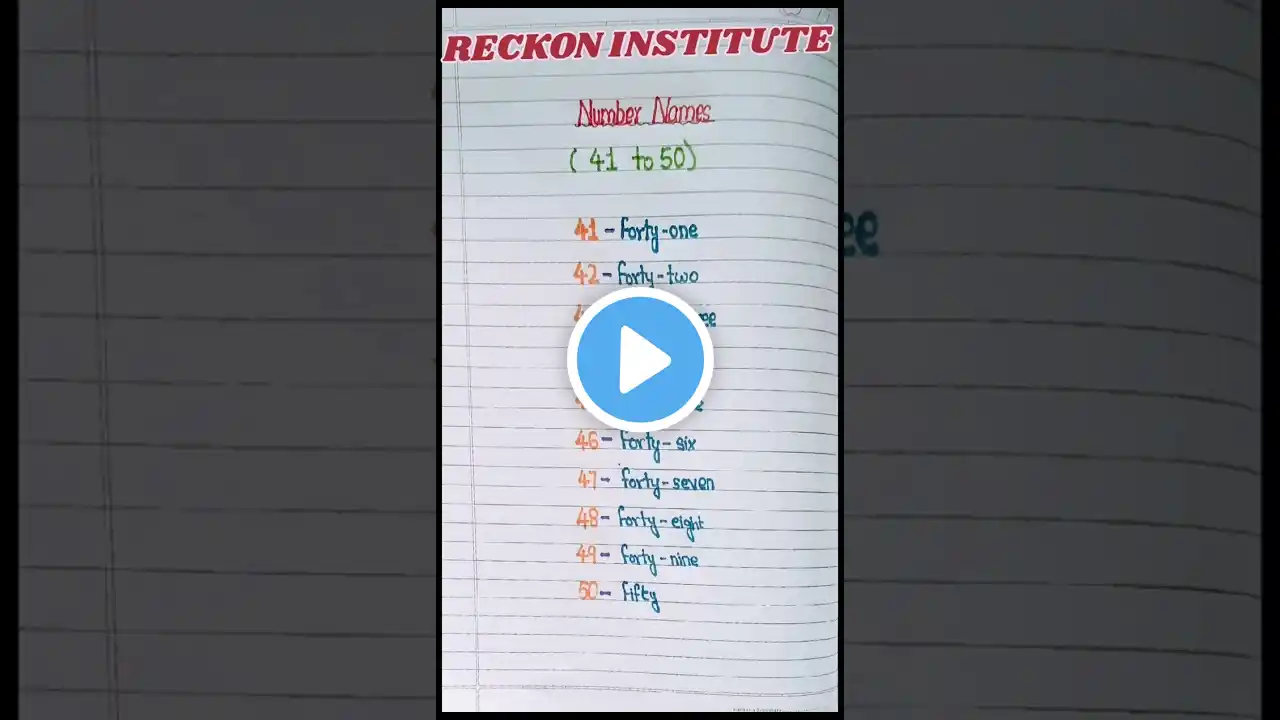 RECKON INSTITUTE
Number Names
(41 to 50)
41 - forty-one
42 - forty-two
46 - forty-six
47 - forty-seven
48 - forty-eight
49 - forty-nine
50 - fifty